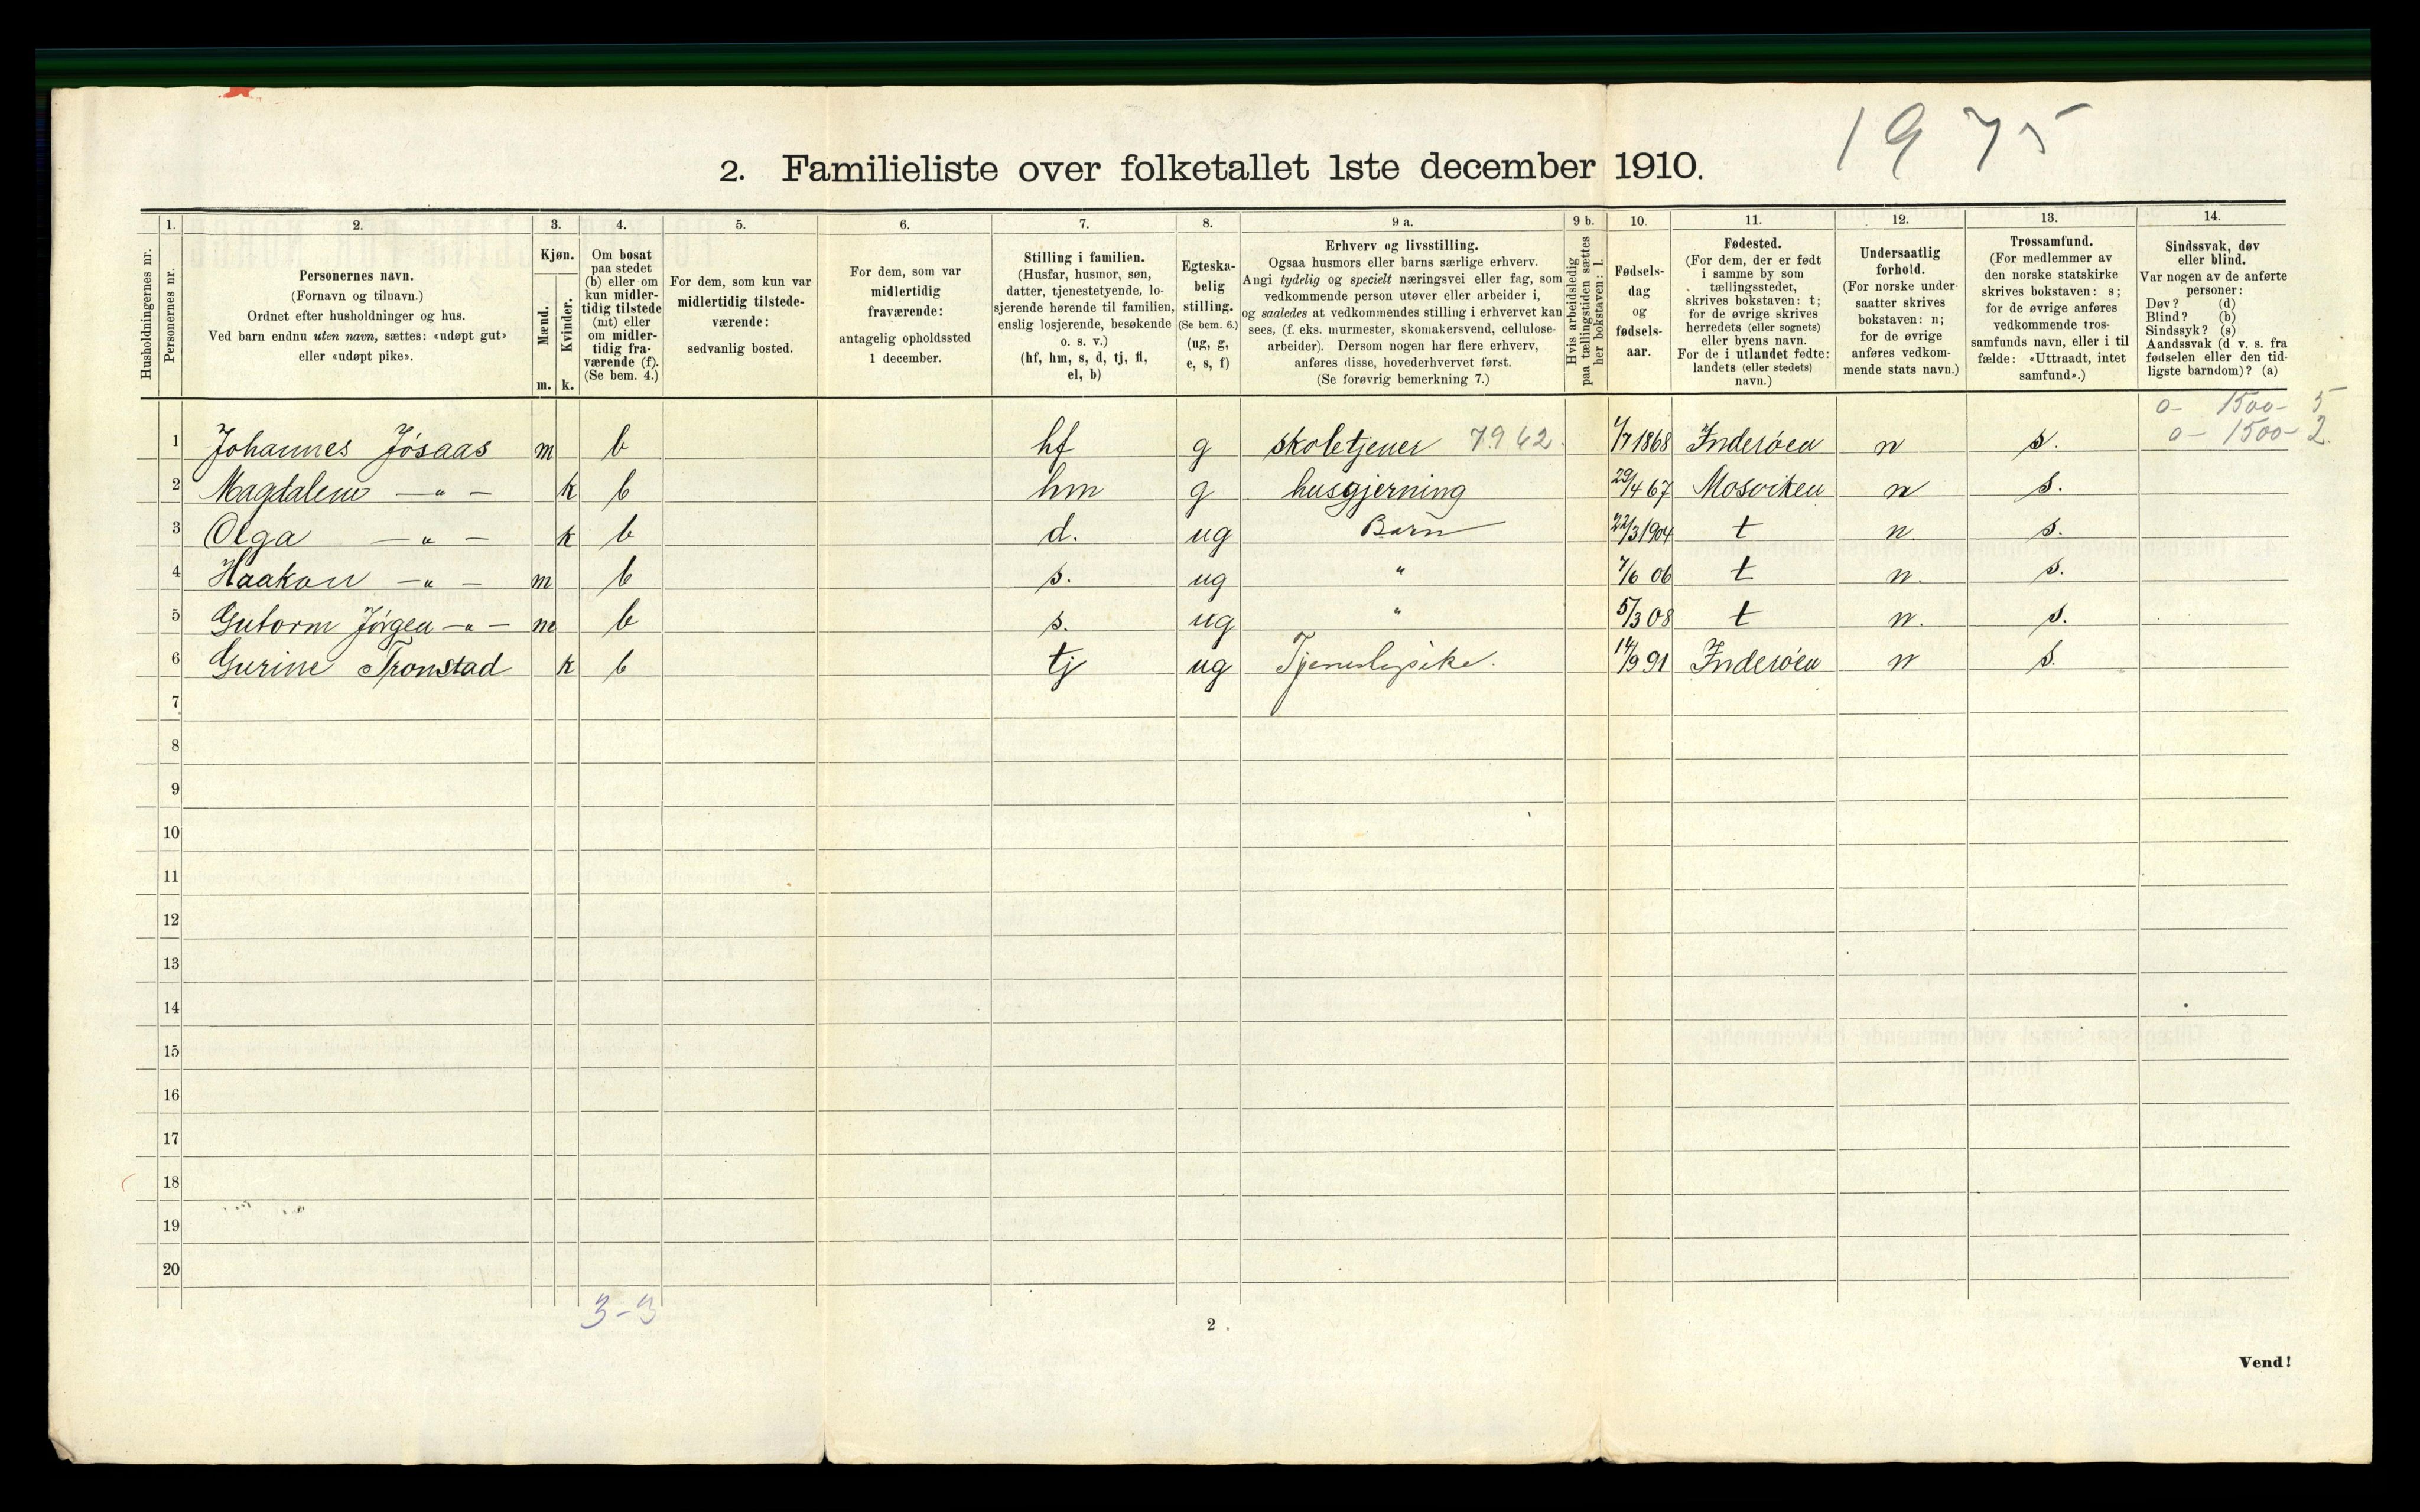 1975
2. Familieliste over folketallet 1ste december 1910.
Husholdningernes nr.
1.
Personernes nr.
2.
Personernes navn.
(Fornavn og tilnavn.)
Ordnet efter husholdninger og hus.
Ved barn endnu uten navn, sættes: «udøpt gut»
eller «udøpt pike».
3.
Kjøn.
Mænd.
Kvinder.
m. k.
4.
Om bosat
paa stedet
(b) eller om
kun midler-
tidig tilstede
(mt) eller
om midler-
tidig fra-
værende (f).
(Se bem. 4.)
5.
For dem, som kun var
midlertidig tilstede-
værende:
sedvanlig bosted.
6.
For dem, som var
midlertidig
fraværende:
antagelig opholdssted
1 december.
7.
Stilling i familien.
(Husfar, husmor, søn,
datter, tjenestetyende, lo-
sjerende hørende til familien,
enslig losjerende, besøkende
o. s. v.)
(hf, hm, s, d, tj, fl,
el, b)
8.
Egteska-
belig
stilling.
(Se bem. 6.)
(ug, g,
e, s, f)
9 a.
Erhverv og livsstilling.
Ogsaa husmors eller barns særlige erhverv.
Angi tydelig og specielt næringsvei eller fag, som
vedkommende person utøver eller arbeider i,
og saaledes at vedkommendes stilling i erhvervet kan
sees, (f. eks. murmester, skomakersvend, cellulose-
arbeider). Dersom nogen har flere erhverv,
anføres disse, hovederhvervet først.
(Se forøvrig bemerkning 7.)
9 b.
Hvis arbeidsledig
paa tællingstiden sættes
her bokstaven: l.
10.
Fødsels-
dag
og
fødsels-
aar.
11.
Fødested.
(For dem, der er født
i samme by som
tællingsstedet,
skrives bokstaven: t;
for de øvrige skrives
herredets (eller sognets)
eller byens navn.
For de i utlandet fødte:
landets (eller stedets)
navn.)
12.
Undersaatlig
forhold.
(For norske under-
saatter skrives
bokstaven: n;
for de øvrige
anføres vedkom-
mende stats navn.)
13.
Trossamfund.
(For medlemmer av
den norske statskirke
skrives bokstaven: s;
for de øvrige anføres
vedkommende tros-
samfunds navn, eller i til
fælde: «Uttraadt, intet
samfund».)
14.
Sindssvak, døv
eller blind.
Var nogen av de anførte
personer:
Døv? (d)
Blind? (b)
Sindssyk? (s)
Aandssvak (d. v. s. fra
fødselen eller den tid-
ligste barndom)? (a)
0- 1500- 5
0- 1500- 2.
1 Johannes Jósaas m b hf g skoletjener 7962. 4/7 1868 Inderóen n s.
2 Magdalene — " — k b hm g husgjerning 29/4 67 Mosviken n s.
3 Olga — " — k b d. ug Barn 22/3 1904 t n. s.
4 Haakon — " — m b s. ug " 7/6 06 t n. s.
5 Gutorm Jórgen — " — m b s. ug " 5/3 08 t n. s.
6 Gurine Tronstad k b tj ug Tjenestepike. 14/9 91 Inderóen n s.
7
8
9
10
11
12
13
14
15
16
17
18
19
20
3-3
2
Vend!